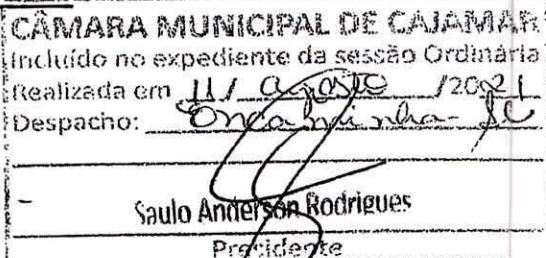 CÂMARA MUNICIPAL DE CAJAMAR
Incluído no expediente da sessão Ordinária
Realizada em 11/ agosto /2021
Despacho: Encaminha-se
Saulo Anderson Rodrigues
Presidente